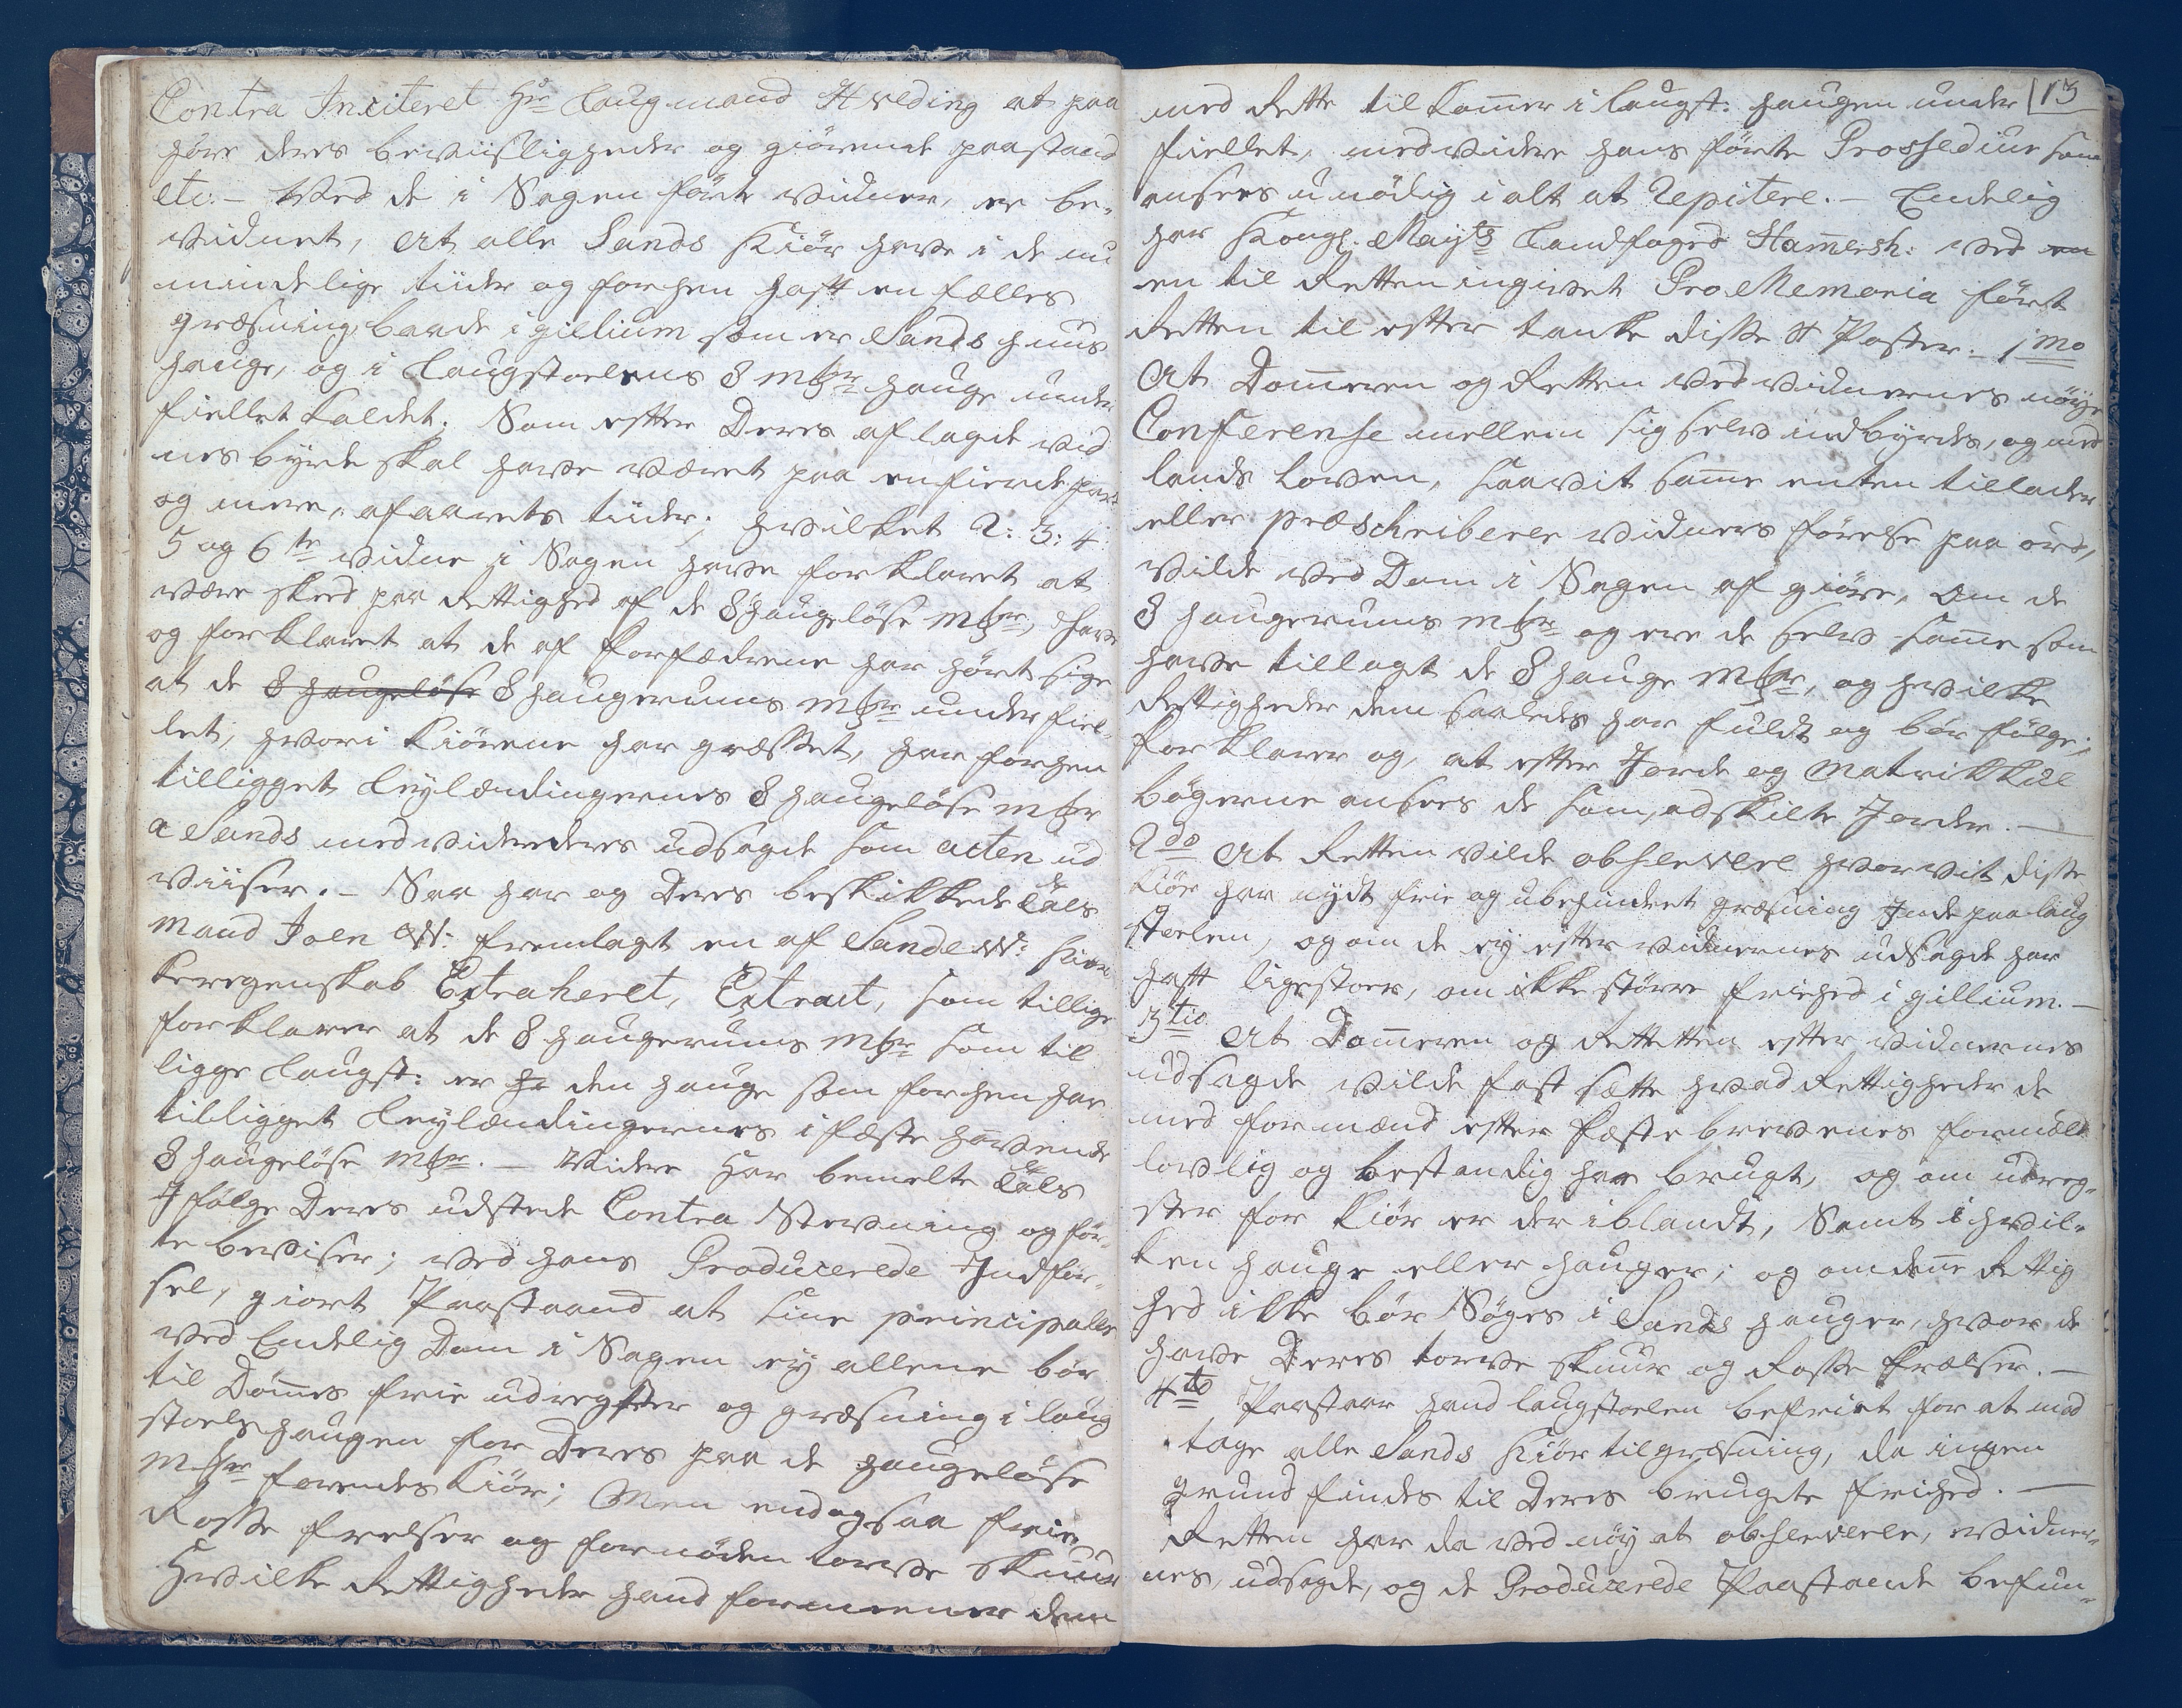 Contra Inciteret Hr Laugmand Hveding at paa
høre deres beviisligheder og giørende paastand
etc:- Ved de i Sagen førte vidner, er be-
vidnet, at alle Sands Kiør have i de nu
mindelige tiider og forhen haft en fælles
græsning, baade i gillium som er Sands huus
hauge, og i Laugstoelens 8 mkr hauge under
fiellet kaldet. Som efter Deres aflagde vid
nesbyrd skal have været paa en fierde part
og mere, af aarets tiider; hvilket 2: 3: 4:
5 og 6te vidne i Sagen have forklaret at
være skeed paa Rettighed af de 8 haugeløse mkr, have
og forklaret at de af Forfædrene har hørt sige
at de 8 haugeløse 8 haugerums mkr under fiel-
let, hvori Kiørene har græsset, har forhen
tilligget Leylændingernes 8 haugeløse mkr
a Sands med videre deres udsagde som acten ud
viiser.- Saa har og Deres beskikkede Lals
mand Joen W: fremlagt en af Sande W: Kir
keregenskab Extraheret, Extract, som tillige
forklarer at de 8 haugerums mkr som til
ligge Laugst: er ha den hauge som forhen har
tilligget Leylændingernes i fæste havende
8 haugeløse mkr.- Videre har bemelte Lals
I følge Deres udstede Contra Stevning og før-
te beviser; ved hans Producerede Indfør-
sel, giort Paastand at hine principaler
ved Endelig Dom i Sagen ey allene bør
til Dømes frie udregster og græsning i laug
stoels haugen for Deres paa de haugeløse
mkr forendes Kiør; Men endogsaa frie
Rosse frelser og fornøden torve skuur
Hvilke Rettigheder hand formeener dem
13
med Rette tilkomer i laugst: haugen under
fiellet, med videre hans førte Prossediur som
ansees unødig i alt at Repitere.- Endelig
har Kongl. Mayts Landfoged Hamersh: ved en
en til Retten ingivet Pro Memoria ført
Retten til efter tanke disse 4 Poster. 1mo
At Domeren og Retten ved vidnernes nøye
Conferense mellem sig selv indbyrdes, og med
lands Loven, saavit same enten tillader
eller præschriberer vidners førelse paa ord,
vilde ved Dom i Sagen afgiøre, om de
8 haugerums mkr og ere de selv same som
have tillagt de 8 hauge mkr, og hvilke
Rettigheder dem saaledes har fuldt og bør følge;
forklarer og, at efter Jorde og Matrikkul
bøgerne ansees de som adskilte Jorder.-
2do At Retten vilde observere hvorvit disse
Kiør har nydt frie og ubehindret græsning Inde paa laug
stoelen, og om de ey efter vidnernes udsagde har
haft ligestoer, om ikke større frihed i gillium.-
3tio At Domeren og Rettetten efter vidnernes
udsagde vilde fastsætte hvad Rettigheder de
med formænd efter fæstebrevenes formæld
lovlig og bestandig har brugt, og om udreg-
ster for Kiør er der iblandt, Samt i hvil-
ken hauge eller hauger; og om den Rettig
hed ikke bør Søges i Sands hauger, hvor de
have Deres torve skuur og Rosse frælser.-
4to Paastaar hand laugstoelen befriet for at mod
tage alle Sands Kiør til græsning, da ingen
grund findes til Deres brugte frihed.-
Retten har da ved nøy at observere, vidner-
nes, udsagde, og de Producerede Paastande befun-